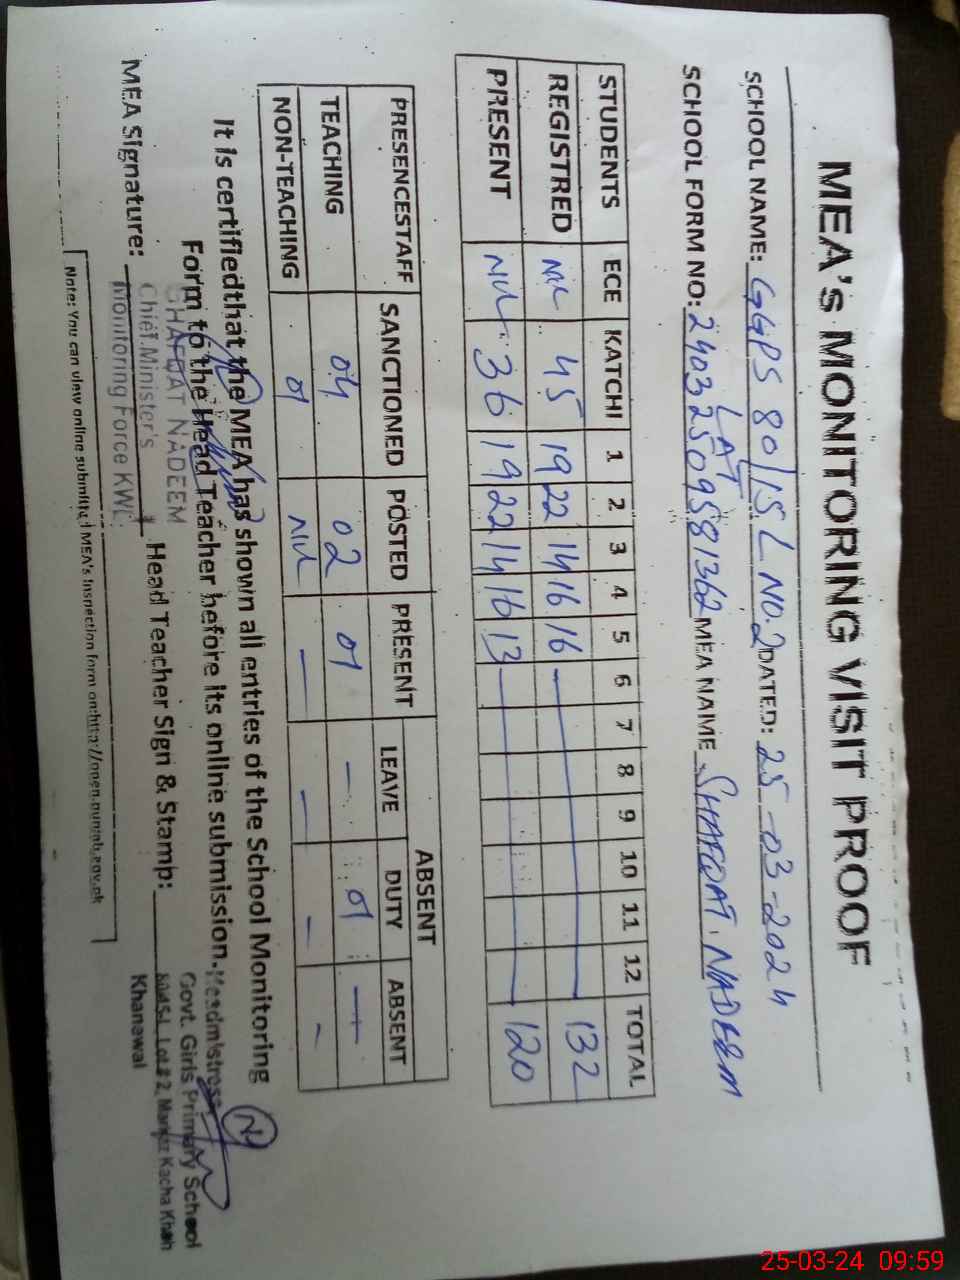 MEA's MONITORING VISIT PROOF
SCHOOL NAME: GGPS 80/15L NO.2 DATED: 25-03-2024
LAT
SCHOOL FORM NO: 2403250958 1362 MEA NAME SHAFQAT. NADEEM
STUDENTS ECE KATCHI 1 2 3 4 5 6 7 8 9 10 11 12 TOTAL
REGISTRED NIL 45 19 22 14 16 16 — 132
PRESENT NIL 36 19 22 14 16 13 — 120
ABSENT
PRESENCESTAFF SANCTIONED POSTED PRESENT LEAVE DUTY ABSENT
TEACHING 04 02 01 — 01 —
NON-TEACHING 01 NIL — — — —
It is certifiedthat the MEA has shown all entries of the School Monitoring
Form to the Head Teacher before its online submission.
MEA Signature: Head Teacher Sign & Stamp:
SHAFQAT NADEEM
Chief Minister's
Monitoring Force KWL.
Headmistress
Govt. Girls Primary School
Khanewal
Note: You can view online submitted MEA's Inspection form on:http://open.punjab.gov.pk
25-03-24 09:59